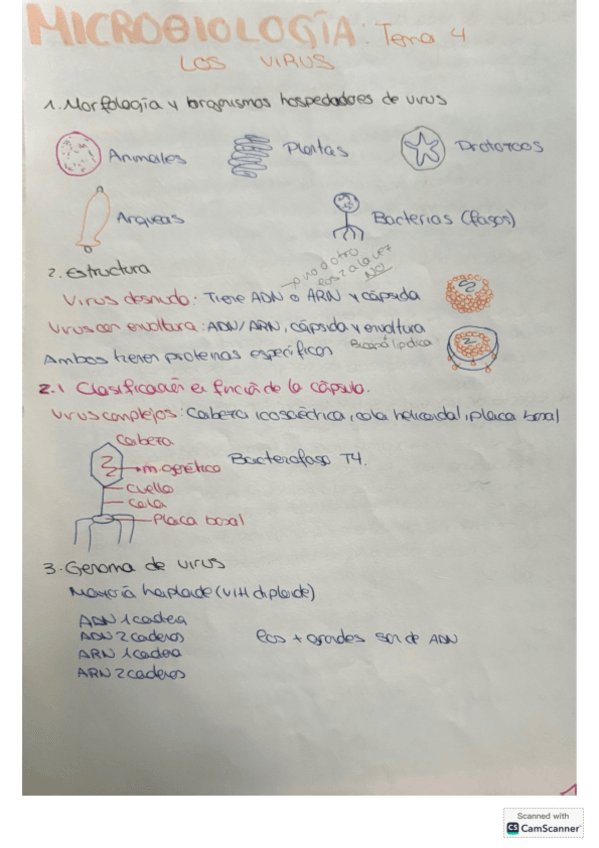 MICROBIOLOGÍA: Tema 4
LOS VIRUS
1. Morfología y organismos hospedadores de virus
Animales
Plantas
Protozoos
Arqueas
Bacterias (fagos)
2. Estructura
→ uno o otro
los 2 a la vez
NO
Virus desnudo: Tiene ADN o ARN y cápsida
Virus con envoltura: ADN/ARN, cápsida y envoltura
Ambos tienen proteínas específicas
Bicapa lipídica
2.1 Clasificación en función de la cápsula.
Virus complejos: Cabeza icosaédrica, cola helicoidal, placa basal
Cabeza
m. genético
Bacteriofago T4.
Cuello
Cola
Placa basal
3. Genoma de virus
Mayoría haploide (VIH diploide)
ADN 1 cadena
ADN 2 cadenas
Los + grandes son de ADN
ARN 1 cadena
ARN 2 cadenas
1
Scanned with
CS CamScanner